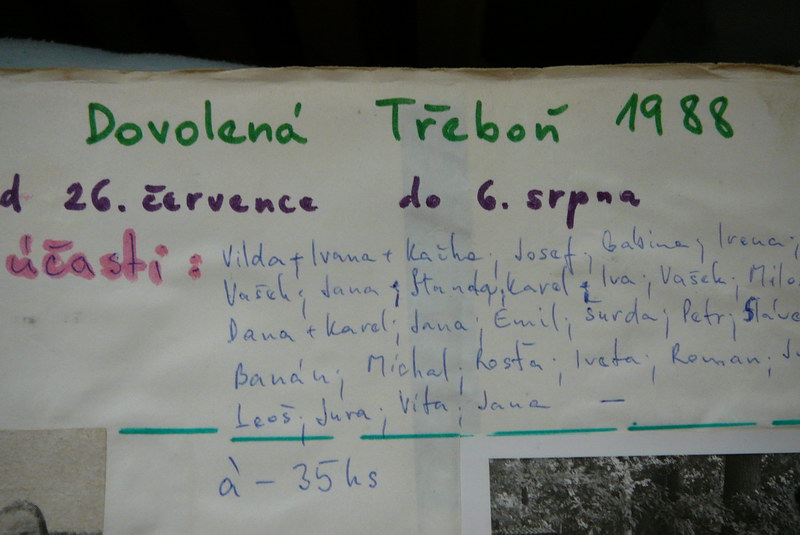 Dovolená Třeboň 1988
d 26. července do 6. srpna
účasti: Vilda + Ivana + Kačka; Josef; Gabina; Irena;
Vašek; Jana; Standa; Karel; Iva; Vašek; Milo
Dana + Karel; Jana; Emil; Šurda; Petr; Sláve
Banán; Michal; Rosťa; Iveta; Roman; Ju
Leoš; Jura; Víťa; Jana —
à - 35 hs